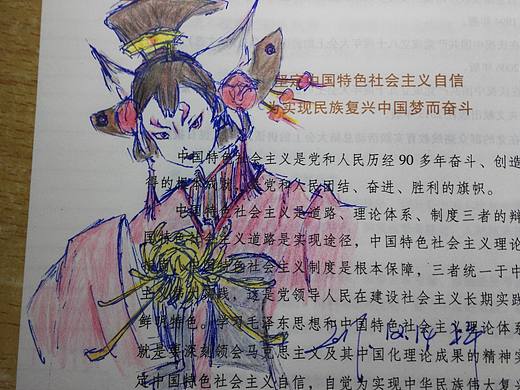 坚定中国特色社会主义自信
为实现民族复兴中国梦而奋斗
中国特色社会主义是党和人民历经 90 多年奋斗、创造
得的根本成就，是党和人民团结、奋进、胜利的旗帜。
中国特色社会主义是道路、理论体系、制度三者的辩
国特色社会主义道路是实现途径，中国特色社会主义理论
色社会主义制度是根本保障，三者统一于中
践，这是党领导人民在建设社会主义长期实践
鲜明特色。学习毛泽东思想和中国特色社会主义理论体系
就是要深刻领会马克思主义及其中国化理论成果的精神实
定中国特色社会主义自信，自觉为实现中华民族伟大复